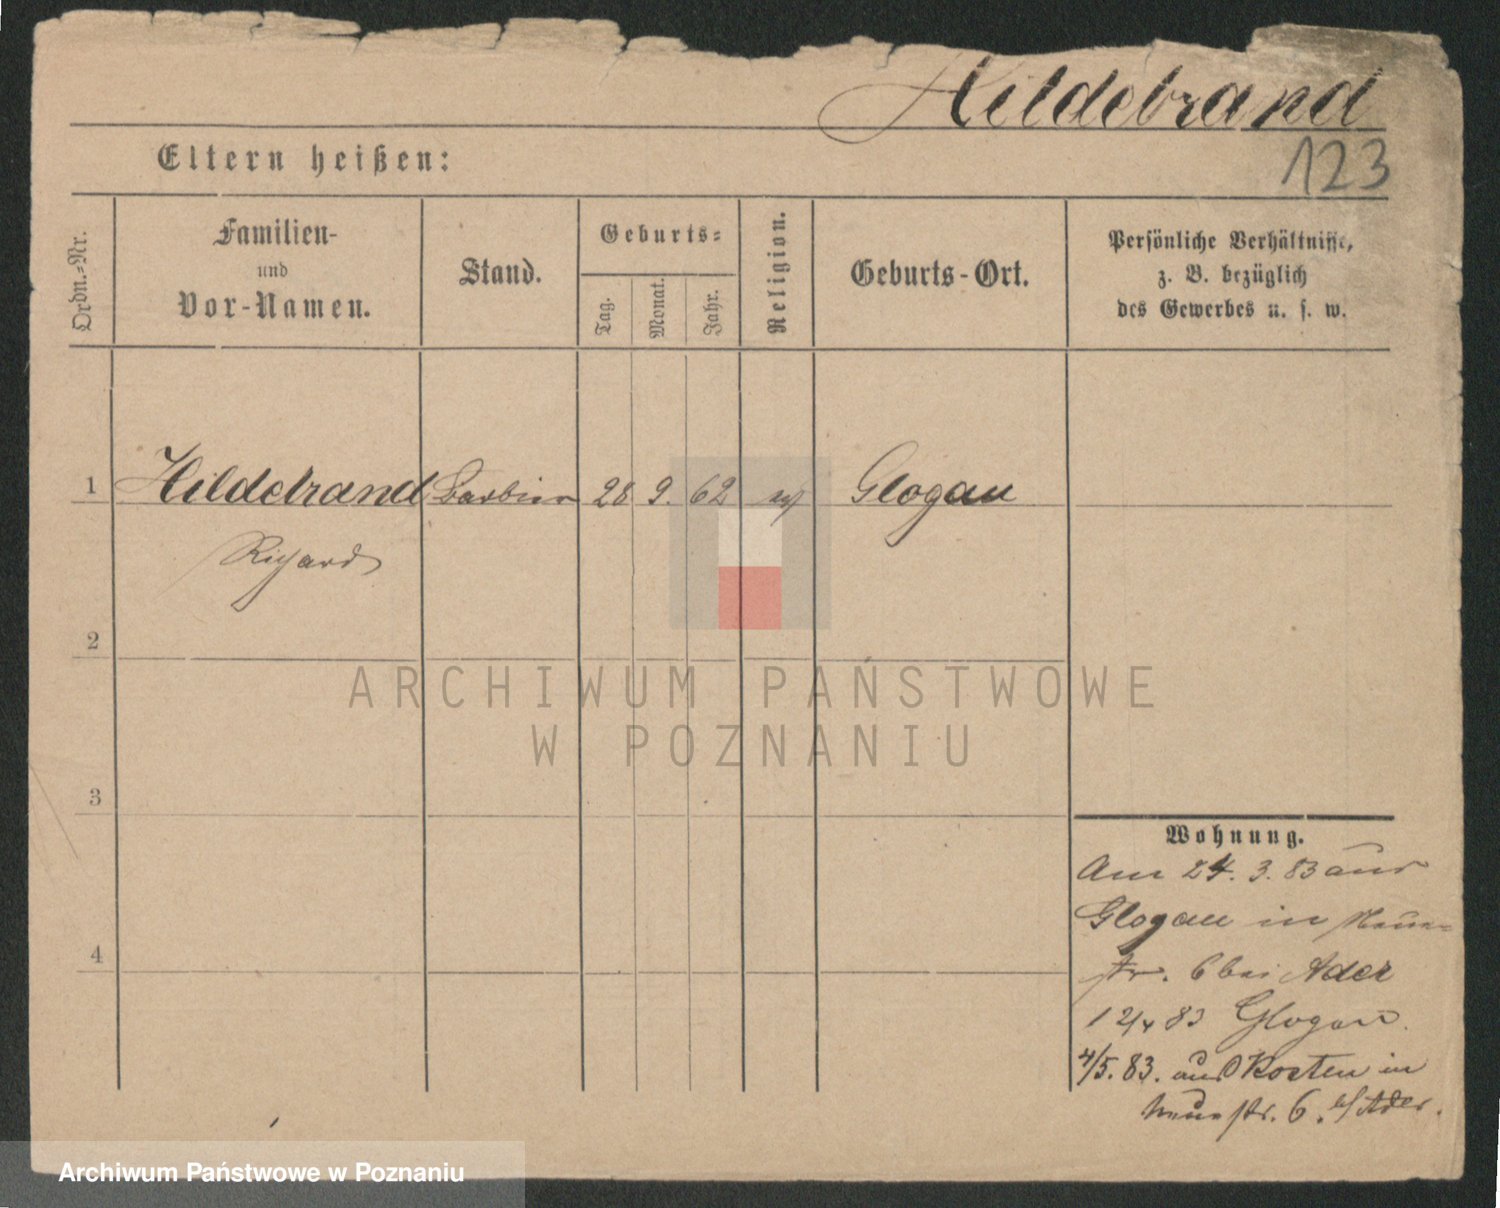 Hildebrand
123
Eltern heißen:
Ordn.-Nr.
Familien-
und
Vor-Namen.
Stand.
Geburts-
Tag.
Monat.
Jahr.
Religion.
Geburts-Ort.
Persönliche Verhältnisse,
z. B. bezüglich
des Gewerbes u. s. w.
1 Hildebrand Barbier 28 9. 62 ev Glogau
Richard
2
3
4
Wohnung.
Am 24. 3. 83 aus
Glogau in Neue-
str. 6 bei Ader
12/4 83 Glogau.
4/5. 83. aus Kosten in
Neuestr. 6. b/ Ader.
ARCHIWUM PAŃSTWOWE
W POZNANIU
Archiwum Państwowe w Poznaniu